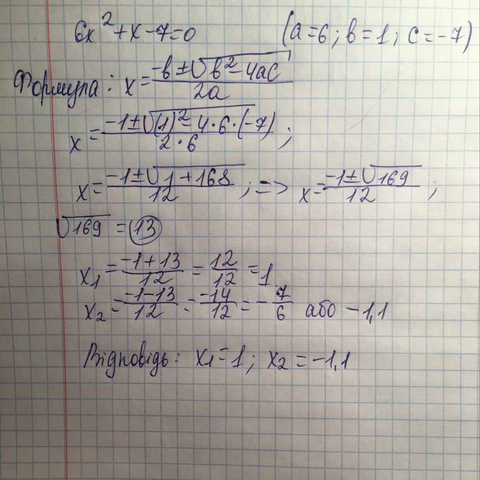 6x²+x-7=0 (a=6; b=1; c=-7)
Формула: x=(-b±√(b²-4ac))/(2a)
x=(-1±√((1)²-4·6·(-7)))/(2·6);
x=(-1±√(1+168))/12; => x=(-1±√169)/12;
√169=13
x₁=(-1+13)/12=12/12=1
x₂=(-1-13)/12=-14/12=-7/6 або -1,1
Відповідь: x₁=1; x₂=-1,1